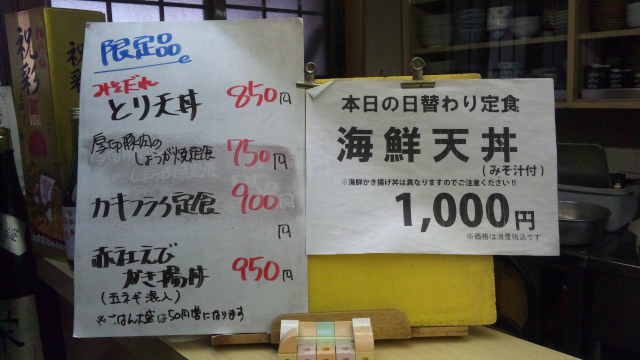 祝彩
限定品
みそだれ
とり天丼 850円
厚切豚肉の
しょうが焼定食 750円
カキフライ定食 900円
赤えび
かき揚丼 950円
(玉ネギ混入)
※ごはん大盛は50円増になります
本日の日替わり定食
海鮮天丼
(みそ汁付)
※海鮮かき揚げ丼は異なりますのでご注意ください!!
1,000円
※価格は消費税込です